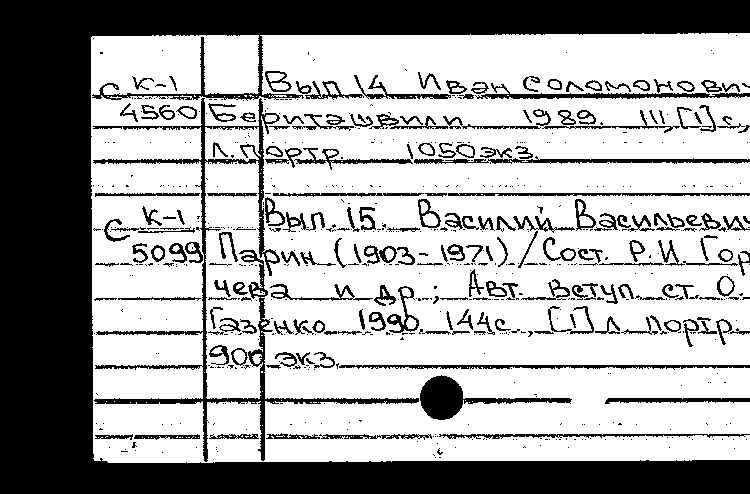 С К-1 Вып 14 Иван Соломонович
4560 Бериташвили. 1989. 111,[1]с.,
л.портр. 1050экз.
С К-1 Вып. 15. Василий Васильевич
5099 Парин (1903-1971)/Сост. Р.И Гор
чева и др; Авт. вступ ст. О.
Газенко 1990. 144с., [1] л портр.
900 экз.